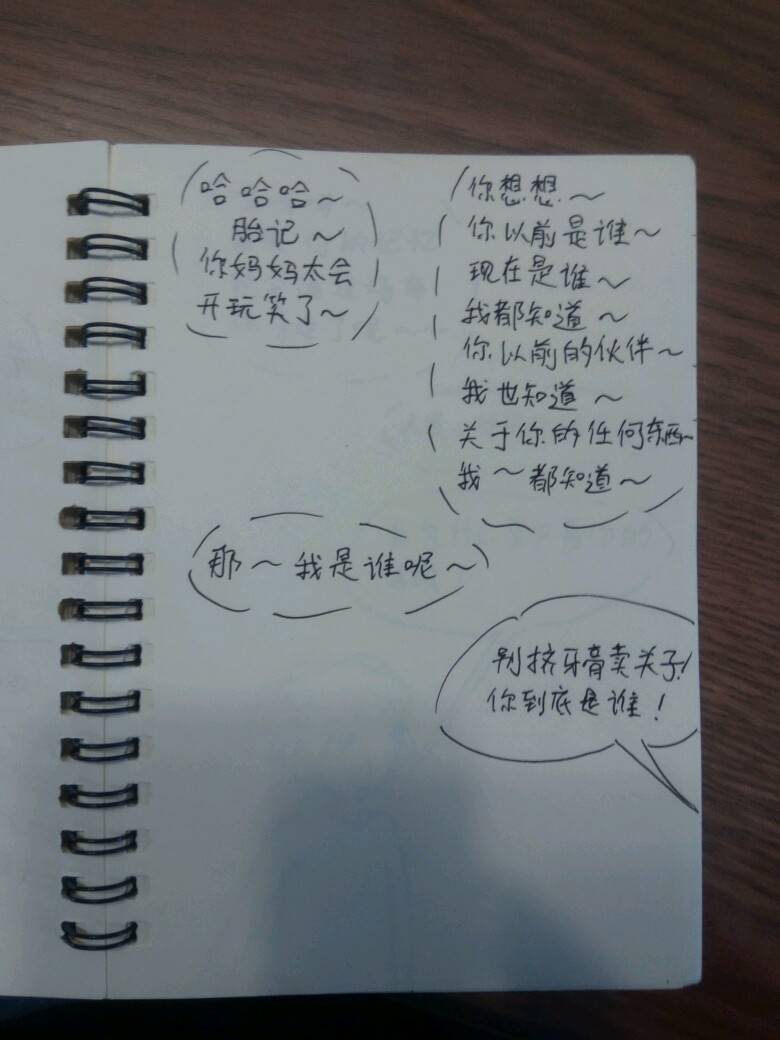 哈哈哈～
胎记～
你妈妈太会
开玩笑了～
你想想～
你以前是谁～
现在是谁～
我都知道～
你以前的伙伴～
我也知道～
关于你的任何东西～
我～都知道～
那～我是谁呢～
别挤牙膏卖关子！
你到底是谁！